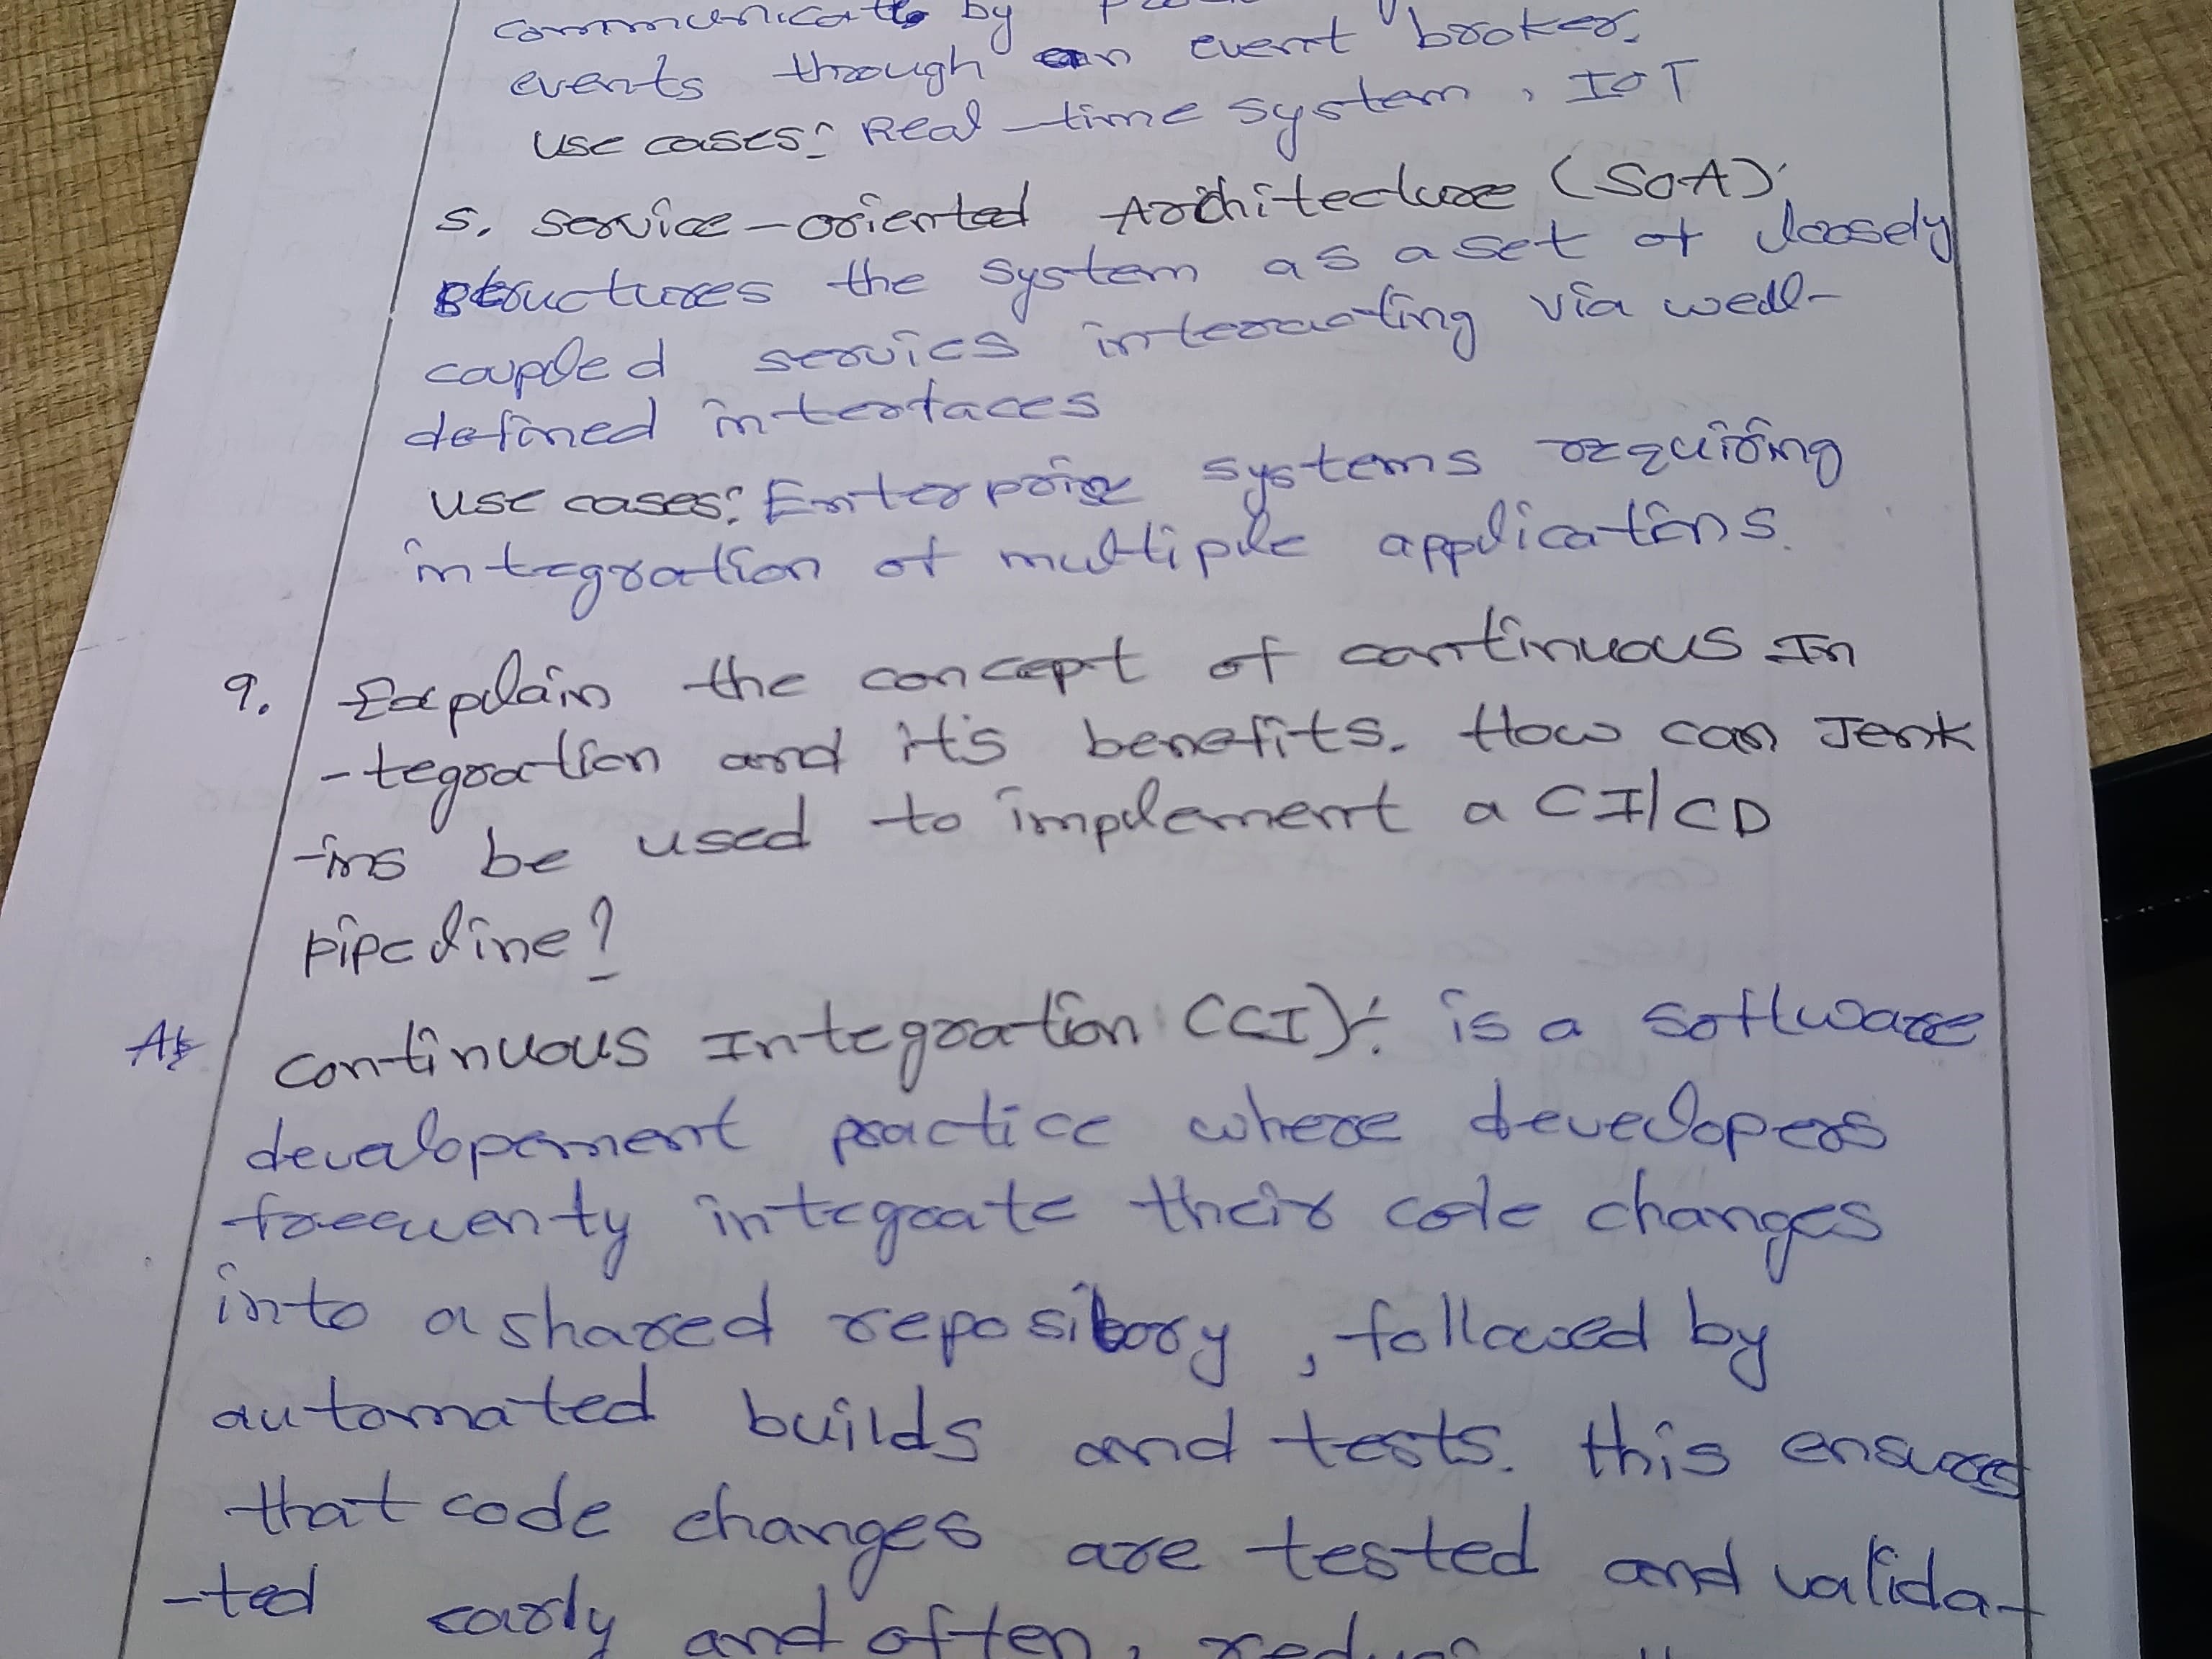 communicatte by
events through an event broker.
use cases: Real-time system, IOT
5. service-oriented Architecture (SOA):
structures the system as a set of loosely
coupled servics interacting via well-
defined interfaces
use cases: Enterprise systems requiring
integration of multiple applications.
9. Explain the concept of continuous In
-tegration and it's benefits. How can Jenk
-ins be used to implement a CI/CD
pipeline?
A: continuous Integration (CI): is a software
developement practice where developers
freequenty integrate their code changes
into a shared repository, followed by
automated builds and tests. this ensures
that code changes are tested and valida-
-ted early and often,